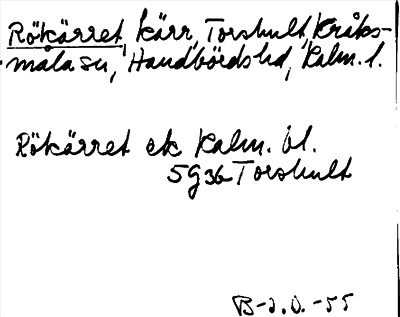 Rökärret, kärr, Torshult, Kråks-
måla sn, Handbörds hd, Kalm. l.
Rökärret ek Kalm. öl.
5G3b Torshult
B-J.O. -55